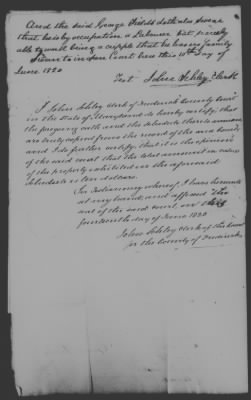 And the said George Fields doth also swear
that he is by occupation a Labourer but is nearly
all time being a cripple that he has no family
Sworn to in open Court here this 14th day of
June 1820
Test John Schley Clerk
I John Schley Clerk of Frederick County Court
in the State of Maryland do hereby certify, that
the foregoing oath and the schedule thereto annexed
are truly copied from the record of the said Court
and I do further certify that it is the opinion
of the said Court that the total amount in value
of the property exhibited in the aforesaid
Schedule is ten dollars.
In Testimony whereof, I have hereunto
set my hand, and affixed the
seal of the said court, on this
fourteenth day of June 1820
John Schley Clerk of the Court
for the County of Frederick